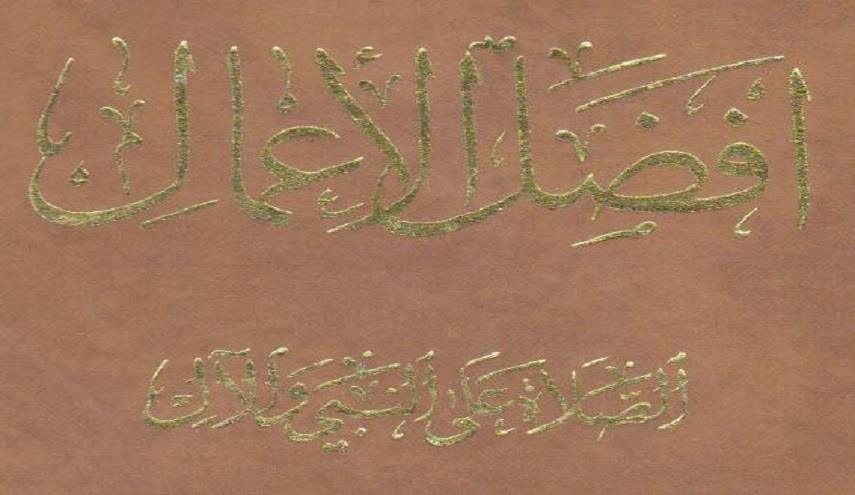 افضل الاعمال
الصلاة على النبي والآل